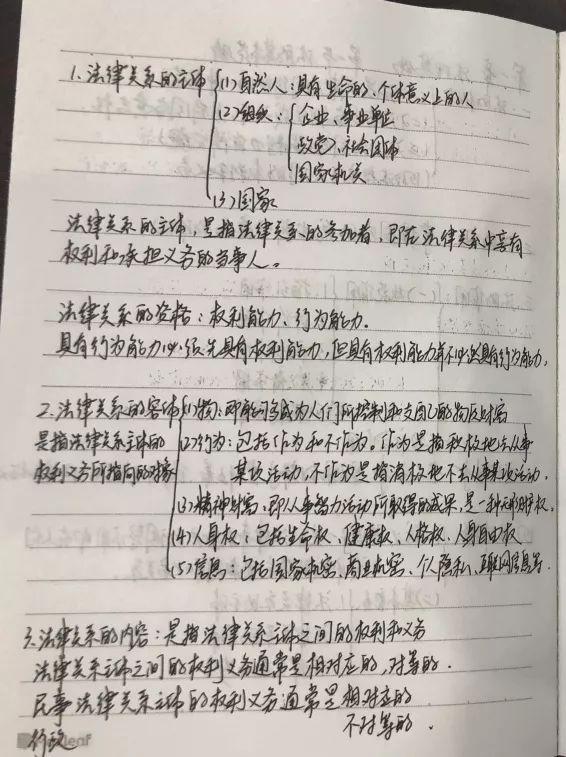 1.法律关系的主体 (1)自然人:具有生命的、个体意义上的人
(2)组织: 企业、事业单位
政党、社会团体
国家机关
(3)国家
法律关系的主体,是指法律关系的参加者,即在法律关系中享有
权利和承担义务的当事人。
法律关系的资格:权利能力、行为能力.
具有行为能力必须先具有权利能力,但具有权利能力并不必然具有行为能力.
2.法律关系的客体 (1)物:即能够成为人们所控制和支配的物质财富
是指法律关系主体的 (2)行为:包括作为和不作为。作为是指积极地去从事
权利义务所指向的对象 某项活动,不作为是指消极地不去从事某项活动.
(3)精神财富:即从事智力活动所取得的成果,是一种无形财权.
(4)人身权:包括生命权、健康权、人格权、人身自由权
(5)信息:包括国家机密、商业机密、个人隐私、互联网信息等.
3.法律关系的内容:是指法律关系主体之间的权利和义务
法律关系主体之间的权利义务通常是相对应的,对等的.
民事法律关系主体的权利义务通常是相对应的
行政 不对等的.
leaf